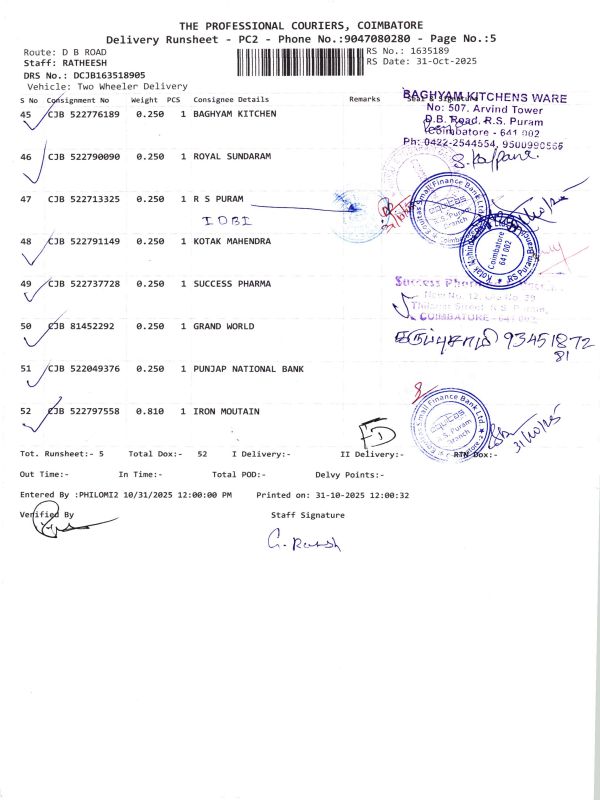 THE PROFESSIONAL COURIERS, COIMBATORE
Delivery Runsheet - PC2 - Phone No.:9047080280 - Page No.:5
Route: D B ROAD
RS No.: 1635189
Staff: RATHEESH
RS Date: 31-Oct-2025
DRS No.: DCJB163518905
Vehicle: Two Wheeler Delivery
S No Consignment No Weight PCS Consignee Details Remarks
45 CJB 522776189 0.250 1 BAGHYAM KITCHEN
BAGHYAM KITCHENS WARE
No: 507. Arvind Tower
D.B. Road, R.S. Puram
Coimbatore - 641 002
Ph: 0422-2544554,
46 CJB 522790090 0.250 1 ROYAL SUNDARAM
47 CJB 522713325 0.250 1 R S PURAM
IDBI
Equitas Small Finance Bank Ltd
R.S. Puram
Branch
48 CJB 522791149 0.250 1 KOTAK MAHENDRA
Coimbatore
641 002
49 CJB 522737728 0.250 1 SUCCESS PHARMA
Success
COIMBATORE - 641 002
50 CJB 81452292 0.250 1 GRAND WORLD
கருப்புசாமி 93451872
81
51 CJB 522049376 0.250 1 PUNJAP NATIONAL BANK
52 CJB 522797558 0.810 1 IRON MOUTAIN
Equitas Small Finance Bank Ltd
R.S. Puram
Branch
31/10/25
Tot. Runsheet:- 5 Total Dox:- 52 I Delivery:- II Delivery:- RTN Dox:-
Out Time:- In Time:- Total POD:- Delvy Points:-
Entered By :PHILOMI2 10/31/2025 12:00:00 PM Printed on: 31-10-2025 12:00:32
Verified By Staff Signature